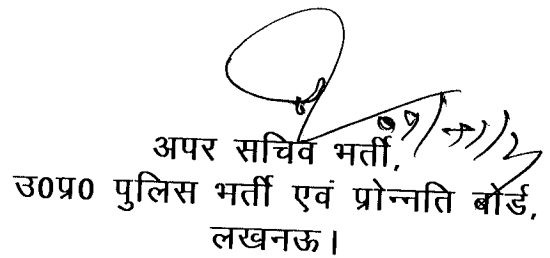 अपर सचिव भर्ती,
उ0प्र0 पुलिस भर्ती एवं प्रोन्नति बोर्ड,
लखनऊ।